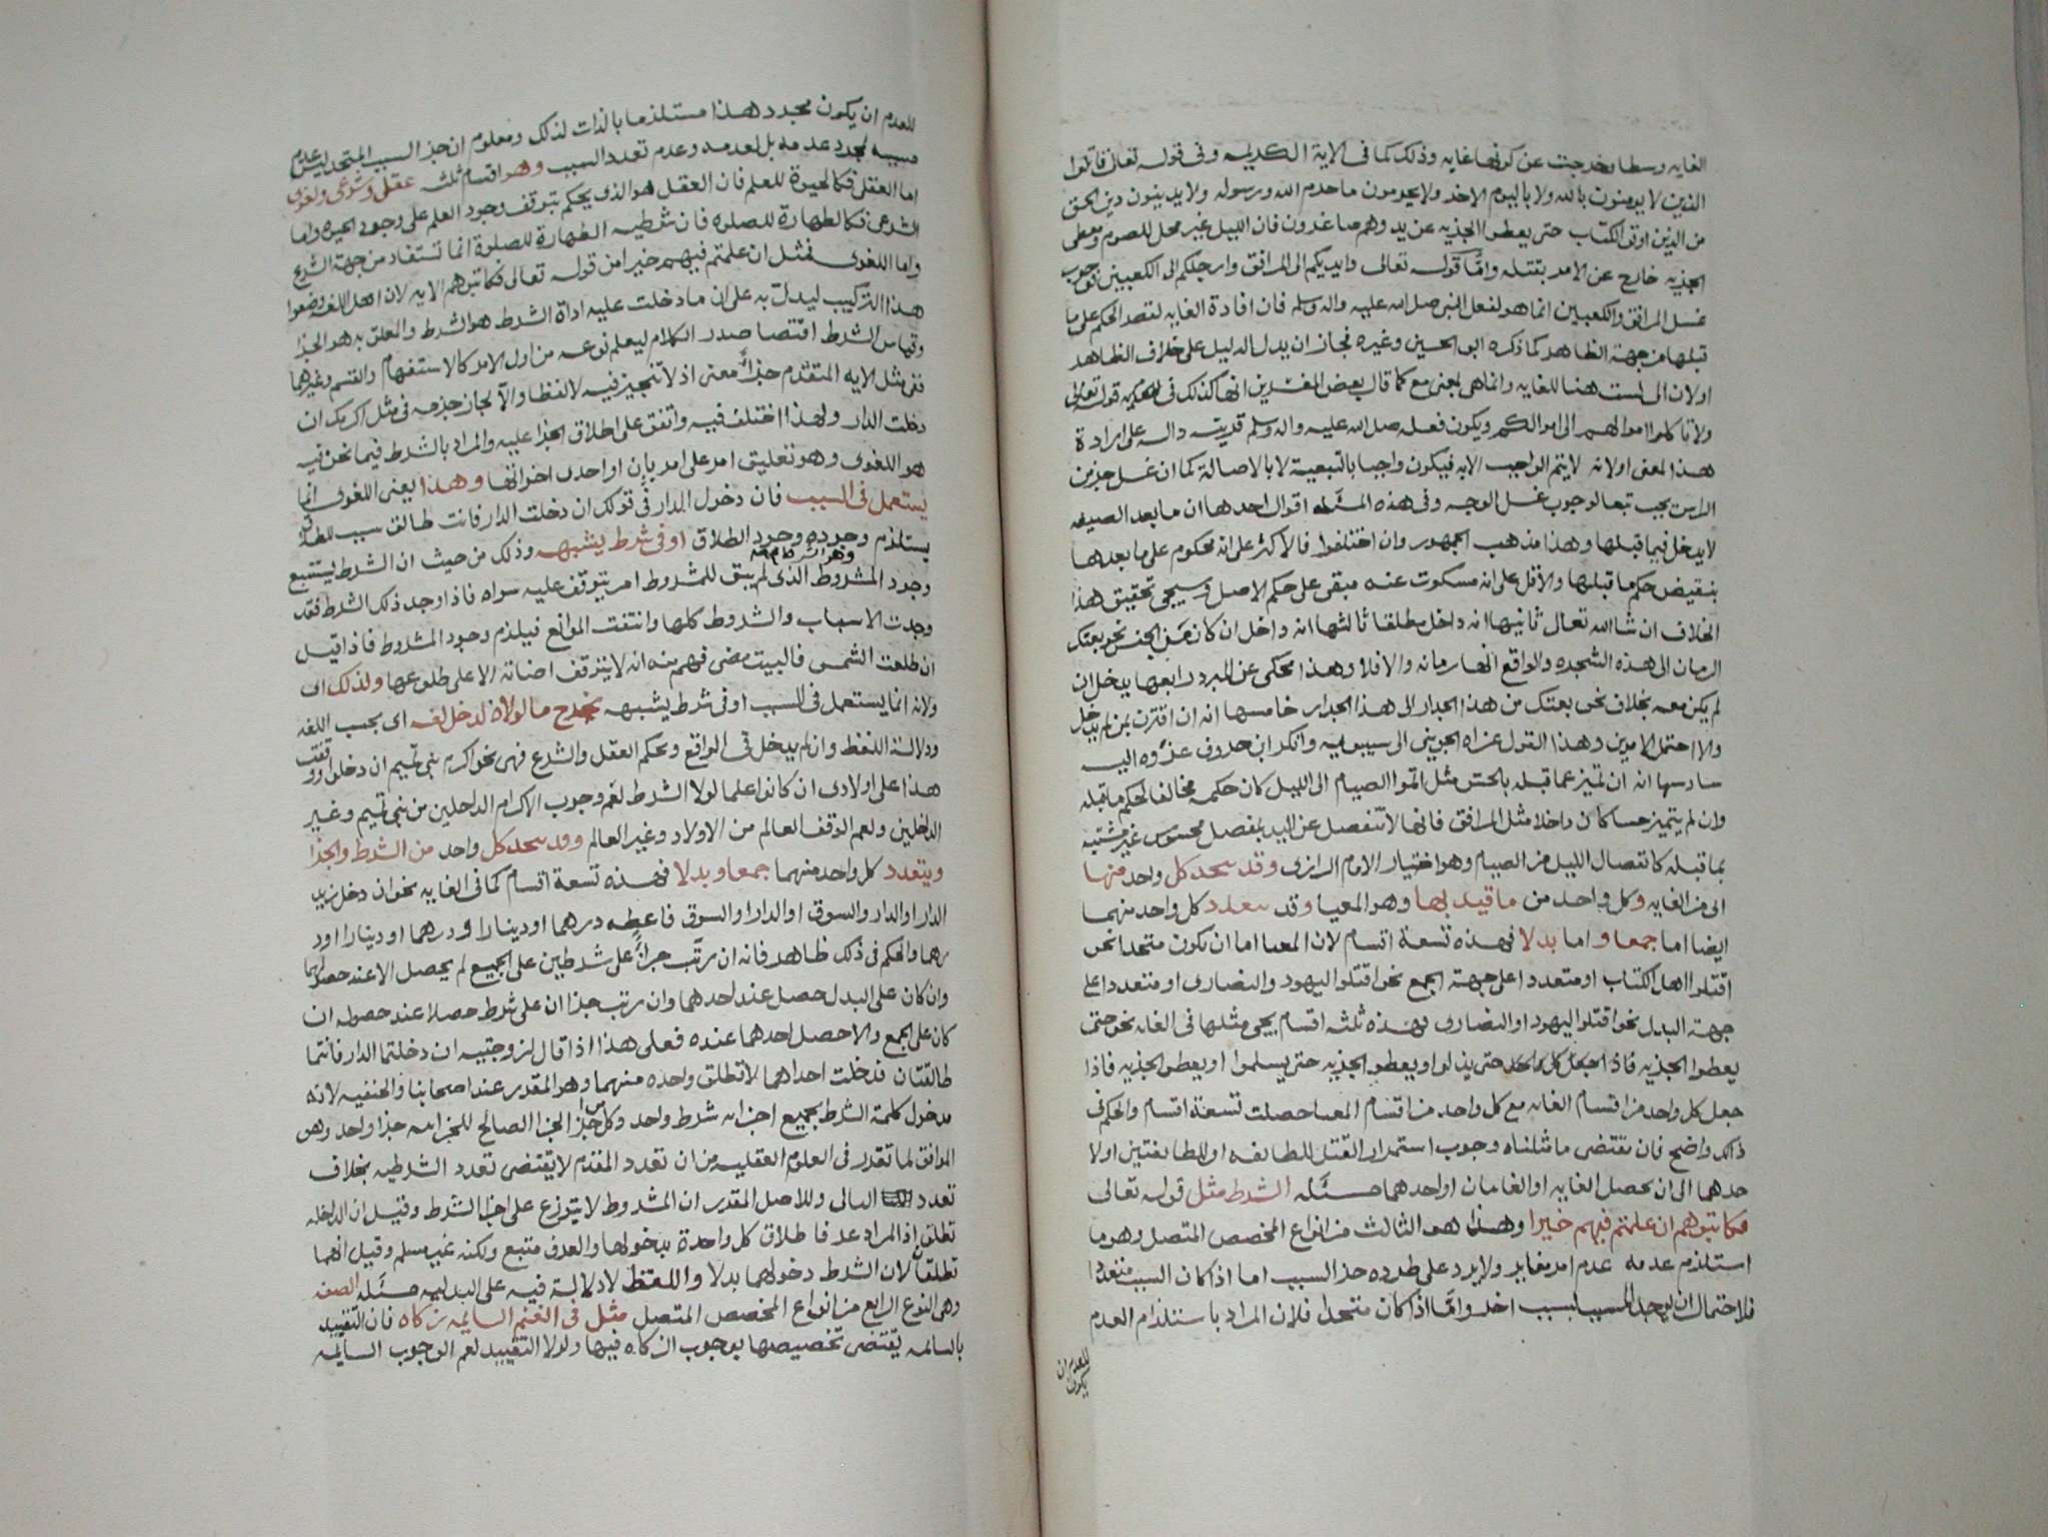 الغايه وسطا وخرجت عن كونها غايه وذلك كما فى الاية الكريمه وفى قوله تعالى قاتلوا
الذين لا يومنون بالله ولا باليوم الاخر ولا يحرمون ما حرم الله ورسوله ولا يدينون دين الحق
من الذين اوتوا الكتاب حتى يعطوا الجزيه عن يد وهم صاغرون فان الليل غير محل للصوم ومعطى
الجزيه خارج عن الامر بقتله وامّا قوله تعالى وايديكم الى المرافق وارجلكم الى الكعبين فوجوب
غسل المرافق والكعبين انما هو لفعل النبى صلى الله عليه واله وسلم فان افادة الغايه لقصر الحكم على ما
قبلها من جهة الظاهر كما ذكره ابو الحسين وغيره فجاز ان يدل الدليل على خلاف الظاهر
او لان الى ليست هنا للغايه وانما هى بمعنى مع كما قال بعض المفسرين انها كذلك فى قوله تعالى
ولا تاكلوا اموالهم الى اموالكم ويكون فعله صلى الله عليه واله وسلم قرينه داله على ارادة
هذا المعنى او لانه لا يتم الواجب الا به فيكون واجبا بالتبعية لا بالاصالة كما ان غسل جزء من
الراس يجب تبعا لوجوب غسل الوجه وفى هذه المسئله اقوال احدها ان ما بعد الصيغه
لا يدخل فيما قبلها وهذا مذهب الجمهور وان اختلفوا فالاكثر على انه محكوم على ما بعدها
بنقيض حكم ما قبلها والاقل على انه مسكوت عنه مبقى على حكم الاصل وسيجى تحقيق هذا
الخلاف ان شا الله تعالى ثانيها انه داخل مطلقا ثالثها انه داخل ان كان من الجنس نحو بعتك
الرمان الى هذه الشجره والواقع انها رمانه والا فلا وهذا محكى عن المبرد رابعها يدخل ان
لم يكن معه من بخلاف نحو بعتك من هذا الجدار الى هذا الجدار خامسها انه ان اقترن بمن لم يدخل
والا احتمل الامرين وهذا القول عزاه الجوينى الى سيبويه وانكر ابن خروف عزوه اليه
سادسها انه ان تميز عما قبله بالحس مثل اتموا الصيام الى الليل كان حكمه مخالفا لحكم ما قبله
وان لم يتميز حسا كان داخلا مثل المرافق فانها لا تنفصل عن اليد بمفصل محسوس غير مشتبه
بما قبله كانفصال الليل من الصيام وهو اختيار الامام الرازى وقد يتحد كل واحد منها
اى من الغايه وكل واحد من ما قيد بها وهو المغيا وقد يتعدد كل واحد منهما
ايضا اما جمعا واما بدلا فهذه تسعة اقسام لان المغيا اما ان يكون متحدا نحو
اقتلوا اهل الكتاب او متعددا على جهة الجمع نحو اقتلوا اليهود والنصارى او متعددا على
جهة البدل نحو اقتلوا اليهود او النصارى فهذه ثلثه اقسام يجى مثلها فى الغايه نحو حتى
يعطوا الجزيه حتى يذلوا ويعطوا الجزيه حتى يسلموا او يعطوا الجزيه فاذا
جعل كل واحد من اقسام الغايه مع كل واحد من اقسام المغيا حصلت تسعة اقسام والحكم فى
ذلك واضح فان مقتضى ما مثلناه وجوب استمرار القتل للطايفه او للطايفتين او لا
حدهما الى ان يحصل الغايه او الغايتان او احدهما مسئله الشرط مثل قوله تعالى
فكاتبوهم ان علمتم فيهم خيرا وهذا هو الثالث من انواع المخصص المتصل وهو ما
استلزم عدمه عدم امر مغاير ولا يرد على طرده جزء السبب اما اذا كان السبب متعددا
فلاحتمال ان يوجد المسبب بسبب اخر وامّا اذا كان متحدا فلان المراد باستلزام العدم
للعدم ان يكون
للعدم ان يكون مجرد هذا مستلزما بالذات لذلك ومعلوم ان جزء السبب المتحد ليس عدم
مسببه لمجرد عدمه بل لعدمه وعدم تعدد السبب وهو اقسام ثلثه عقلى وشرعى ولغوى
اما العقلى فكالحيوة للعلم فان العقل هو الذى يحكم بتوقف وجود العلم على وجود الحيوه واما
الشرعى فكالطهارة للصلوة فان شرطيه الطهارة للصلوة انما تستفاد من جهة الشرع
واما اللغوى فمثل ان علمتم فيهم خيرا من قوله تعالى فكاتبوهم الايه لان اهل اللغه وضعوا
هذا التركيب ليدل به على ان ما دخلت عليه اداة الشرط هو الشرط والمعلق به هو الجزا
وقياس الشرط اقتضا صدر الكلام ليعلم نوعه من اول الامر كالاستفهام والقسم وغيرهما
ففى مثل الايه المتقدم جزاء معنى اذ لا تنجيز فيه لا لفظا والا لجاز جزمه فى مثل اكرمك ان
دخلت الدار ولهذا اختلف فيه واتفق على اطلاق الجزا عليه والمراد بالشرط فيما نحن فيه
هو اللغوى وهو تعليق امر على امر بإن او احدى اخواتها وهذا يعنى اللغوى انما
يستعمل فى السبب فان دخول الدار فى قولك ان دخلت الدار فانت طالق سبب للطلاق
يستلزم وجوده وجود الطلاق او فى شرط يشبهه وذلك من حيث ان الشرط يستتبع
وجود المشروط الذى لم يبق للمشروط امر يتوقف عليه سواه فاذا وجد ذلك الشرط فقد
وجدت الاسباب والشروط كلها وانتفت الموانع فيلزم وجود المشروط فاذا قيل
ان طلعت الشمس فالبيت مضى فهم منه انه لا يتوقف اضائه الا على طلوعها ولذلك اى
ولانه انما يستعمل فى السبب او فى شرط يشبهه يخرج ما لولاه لدخل لغه اى بحسب اللغه
ودلالة اللفظ وان لم يدخل فى الواقع وبحكم العقل والشرع فهى نحو اكرم بنى تميم ان دخلوا ووقفت
هذا على اولادى ان كانوا علما لولا الشرط لعم وجوب الاكرام الداخلين من بنى تميم وغير
الداخلين ولعم الوقف العالم من الاولاد وغير العالم وقد يتحد كل واحد من الشرط والجزا
ويتعدد كل واحد منهما جمعا وبدلا فهذه تسعة اقسام كما فى الغايه نحو ان دخل زيد
الدار او الدار والسوق او الدار او السوق فاعطه درهما او دينارا ودرهما او دينارا او د
رهما والحكم فى ذلك ظاهر فانه ان رتب جزاء على شرطين على الجميع لم يحصل الا عند حصولهما
وان كان على البدل حصل عند احدهما وان رتب جزا ان على شرط حصلا عند حصوله ان
كان على الجمع والا حصل احدهما عنده فعلى هذا اذا قال لزوجتيه ان دخلتما الدار فانتما
طالقتان فدخلت احداهما لا تطلق واحده منهما وهو المقدر عند اصحابنا والحنفيه لانه
مدخول كلمة الشرط بجميع اجزائه شرط واحد وكل من أجزا الجزا الصالح للجزائيه جزا واحد وهو
الموافق لما تقرر فى العلوم العقليه من ان تعدد المقدم لا يقتضى تعدد الشرطيه بخلاف
تعدد التالى وللاصل المقدر ان المشروط لا يتوزع على اجزا الشرط وقيل ان الداخله
تطلق اذ المراد عرفا طلاق كل واحدة بدخولها والعرف متبع ولكنه غير مسلم وقيل انهما
تطلقان لان الشرط دخولهما بدلا واللفظ لا دلالة فيه على البدليه مسئله الصفه
وهى النوع الرابع من انواع المخصص المتصل مثل فى الغنم السايمه زكاه فان التقييد
بالسايمه يقتضى تخصيصها بوجوب الزكاه فيها ولولا التقييد لعم الوجوب السايمه